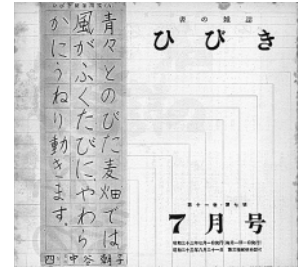 書の雑誌
ひびき
第十一巻・第七号
7月号
青々とのびた麦畑では
風がふくたびに、やわら
かにうねり動きます。
四 中谷朝子